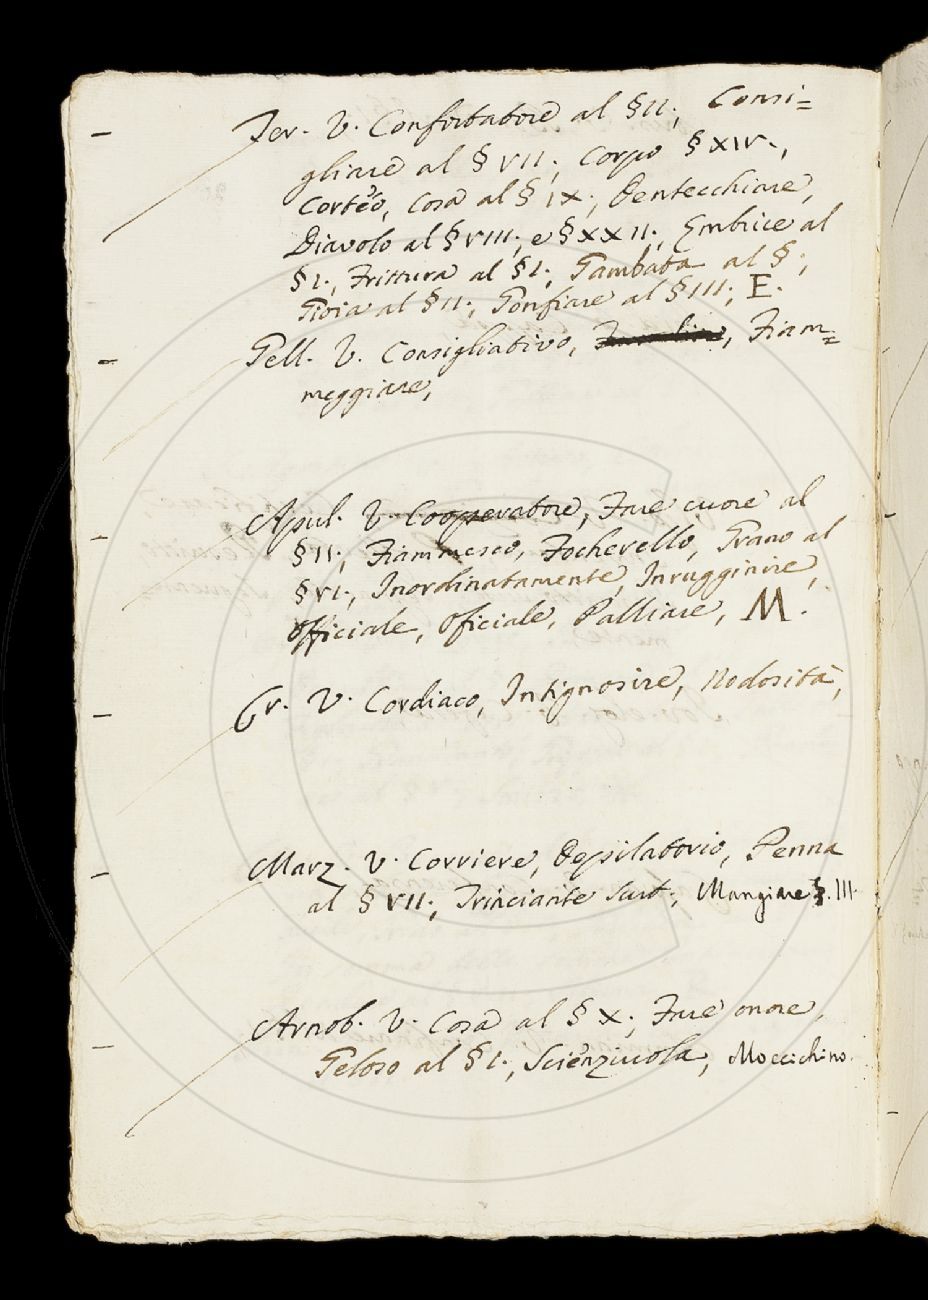 Ter. V. Confortatore al §II., Consi=
gliare al § VII., Corpo § XIV.,
Cortèo, Cosa al § IX., Dentecchiare,
Diavolo al § VIII., e § XXII., Embrice al
§ I., Frittura al § I., Gambata al §,
Gioia al § II., Gonfiare al § III., E.
Gell. V. Consigliativo, , Fiam=
meggiare,
Apul. V. Cooperatore, Fare cuore al
§ II., Fiammesco, Focherello, Grano al
§ VI., Inordinatamente, Inrugginire,
Officiale, Oficiale, Palliare, M.
Gr. V. Cordiaco, Intignosire, Nodosità,
Marz. V. Corriere, Depilatorio, Penna
al § VII., Trinciante sust., Mangiare §. III.
Arnob. V. Cosa al § X., Fare onore,
Geloso al § I., Scienziuola, Moccichino.